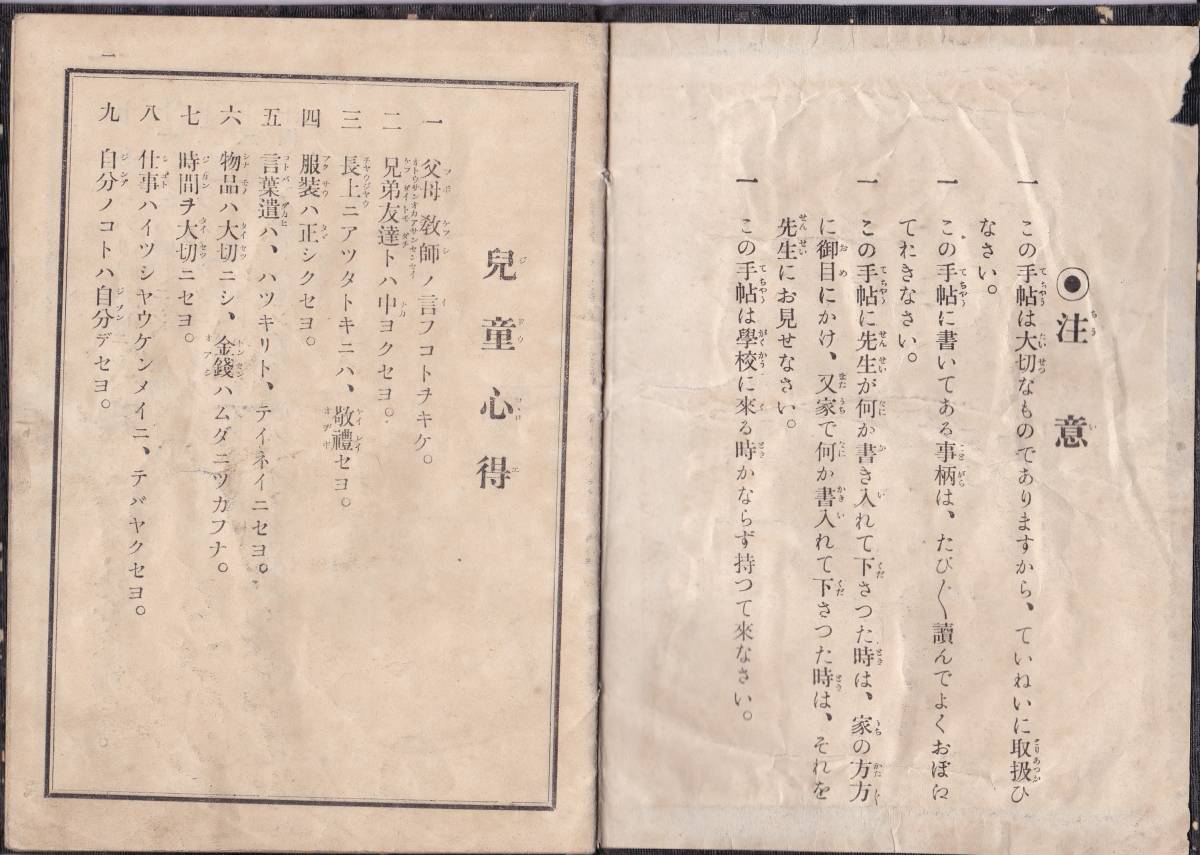 ◉注意
一 この手帖は大切なものでありますから、ていねいに取扱ひ
なさい。
一 この手帖に書いてある事柄は、たび〳〵讀んでよくおぼに
てれきなさい。
一 この手帖に先生が何か書き入れて下さつた時は、家の方方
に御目にかけ、又家で何か書入れて下さつた時は、それを
先生にお見せなさい。
一 この手帖は學校に來る時かならず持つて來なさい。
兒童心得
一 父母教師ノ言フコトヲキケ。
二 兄弟友達トハ中ヨクセヨ。
三 長上ニアツタトキニハ、敬禮セヨ。
四 服裝ハ正シクセヨ。
五 言葉遣ハ、ハツキリト、テイネイニセヨ。
六 物品ハ大切ニシ、金錢ハムダニツカフナ。
七 時間ヲ大切ニセヨ。
八 仕事ハイツシヤウケンメイニ、テバヤクセヨ。
九 自分ノコトハ自分デセヨ。
一